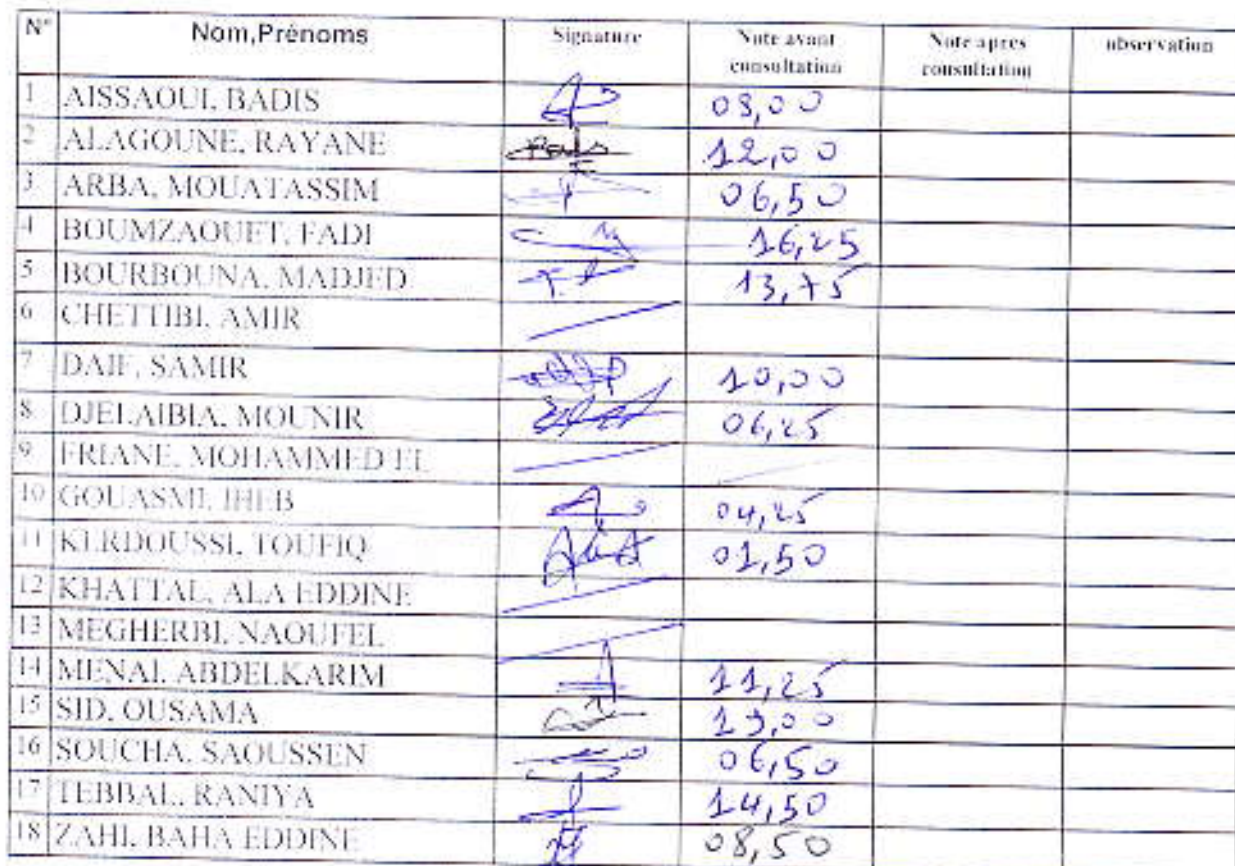 N° Nom,Prénoms Signature Note avant consultation Note apres consultation observation
1 AISSAOUI, BADIS 08,00
2 ALAGOUNE, RAYANE 12,00
3 ARBA, MOUATASSIM 06,50
4 BOUMZAOUET, FADI 16,25
5 BOURBOUNA, MADJED 13,75
6 CHETTIBI, AMIR
7 DAIF, SAMIR 10,00
8 DJELAIBIA, MOUNIR 06,25
9 FRIANE, MOHAMMED EL
10 GOUASMI, IHEB 04,25
11 KERDOUSSI, TOUFIQ 01,50
12 KHATTAL, ALA EDDINE
13 MEGHERBI, NAOUFEL
14 MENAI, ABDELKARIM 11,25
15 SID, OUSAMA 13,00
16 SOUCHA, SAOUSSEN 06,50
17 TEBBAL, RANIYA 14,50
18 ZAHI, BAHA EDDINE 08,50